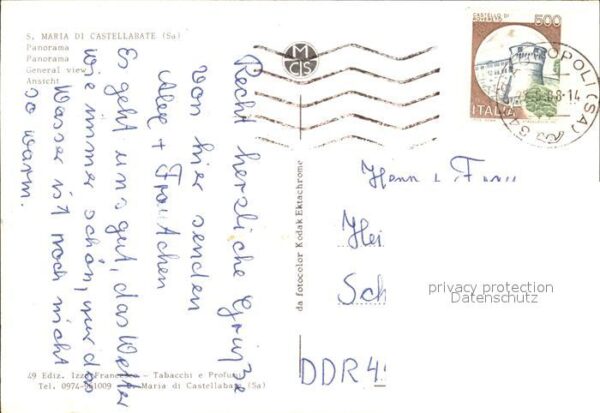 S. MARIA DI CASTELLABATE (Sa)
Panorama
Panorama
General view
Ansicht
MCIS
CASTELLO DI
ROVERETO
500
ITALIA
OPOLI (SA)
8-14
Recht herzliche Grüße
von hier senden
+ Frauchen
Es geht uns gut, das Wetter
wie immer schön, nur das
Wasser ist noch nicht
so warm.
da fotocolor Kodak Ektachrome
Herrn u. Frau
Hei
Sch
DDR 4
privacy protection
Datenschutz
49 Ediz. Izzo Francesco - Tabacchi e Profumi
Tel. 0974-961009 - S. Maria di Castellabate (Sa)